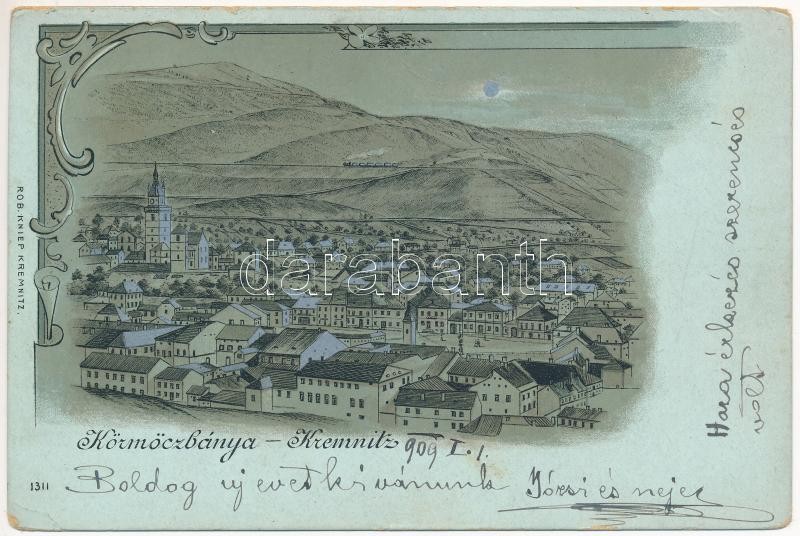 ROB. KNIEP KREMNITZ.
darabanth
Körmöczbánya – Kremnitz 909 I. 1.
1311
Boldog uj evet kivánunk Józsi és neje
Haza érkezés szerencsés
volt